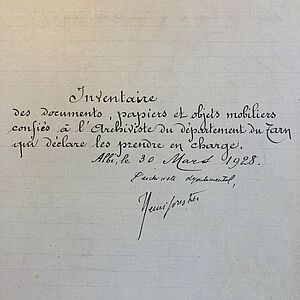 Inventaire
des documents, papiers et objets mobiliers
confiés à l'Archiviste du département du Tarn
qui déclare les prendre en charge.
Albi, le 30 Mars 1928.
L'archiviste départemental,